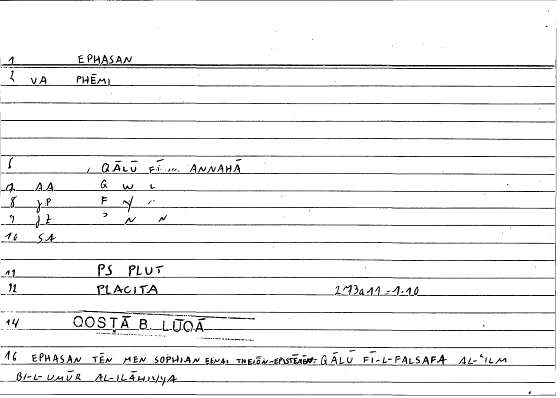 1 EPHASAN
2 VA PHĒMI
6 , QĀLŪ FĪ... ANNAHĀ
7 AA Q W L
8 JP F Y
9 JZ ' N N
10 SA
11 PS PLUT
12 PLACITA 273a11 = 1.10
14 QOSṬĀ B. LŪQĀ
16 EPHASAN TĒN MEN SOPHIAN EENAI THEIŌN EPISTĒMĒN: QĀLŪ FĪ-L-FALSAFA AL-ʿILM
BI-L-UMŪR AL-ILĀHIYYA